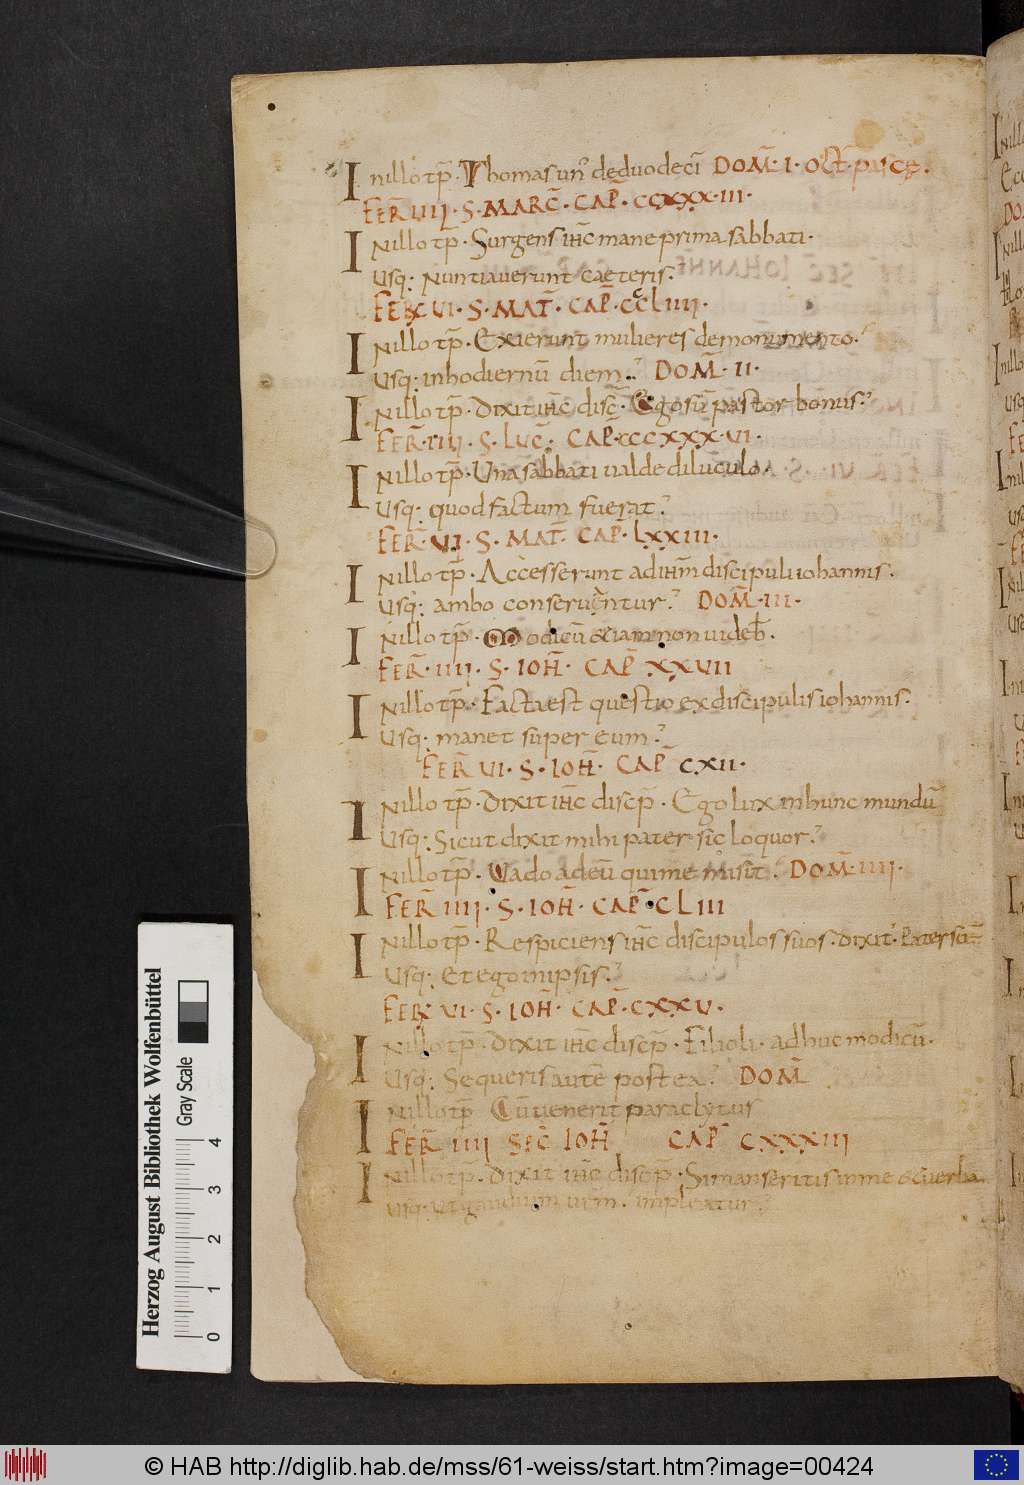 Inillo tp̄. Thomas un᷒ deduodecī DOM̄. I. OCT̄. PASCE.
FER̄ IIII. S. MARC̄. CAP̄. CCXXX.III.
Inillo tp̄. Surgens ih̄c mane prima sabbati.
Usq; Nuntiaverunt caeteris.
FER VI. S. MAT̄. CAP̄. CCLIIII.
Inillo tp̄. Exierunt mulieres demonumento.
Usq; inhodiernū diem. DOM̄. II.
Inillo tp̄. Dixit ih̄c disc̄. Ego sū pastor bonus.
FER̄. IIII. S. LUC̄. CAP̄. CCCXXX.VI.
Inillo tp̄. Una sabbati ualde diluculo.
Usq; quod factum fuerat.
FER̄. VI. S. MAT̄. CAP̄. LXXIII.
Inillo tp̄. Accesserunt ad ih̄m discipuli iohannis.
Usq; ambo conseruantur. DOM̄. III.
Inillo tp̄. Modicū & iam non uideb̄.
FER̄. IIII. S. IOH̄. CAP̄ XXVII
Inillo tp̄. Facta est questio ex discipulis iohannis.
Usq; manet super eum.
FER̄ VI. S. IOH̄. CAP̄ CXII.
Inillo tp̄. Dixit ih̄c discp̄. Ego lux inhunc mundū
Usq; Sicut dixit mihi pater sic loquor.
Inillo tp̄. Vado adeū qui me misit. DOM̄. IIII.
FER̄ IIII. S. IOH̄. CAP̄. CLIII
Inillo tp̄. Respiciens ih̄c discipulos suos. dixit. Pater scē
Usq; Et ego in ipsis.
FER VI. S. IOH̄. CAP̄. CXXV.
Inillo tp̄. Dixit ih̄c discp̄. Filioli. adhuc modicū.
Usq; Sequeris autē postea. DOM̄
Inillo tp̄ Cū uenerit paraclytus
FER̄ IIII SEC̄ IOH̄ CAP̄ CXXXIII
Inillo tp̄. Dixit ih̄c discp̄. Si manseritis in me & uerba
Usq; Ut gaudium urm̄. impleatur.
Herzog August Bibliothek Wolfenbüttel
Gray Scale
0 1 2 3 4
© HAB http://diglib.hab.de/mss/61-weiss/start.htm?image=00424